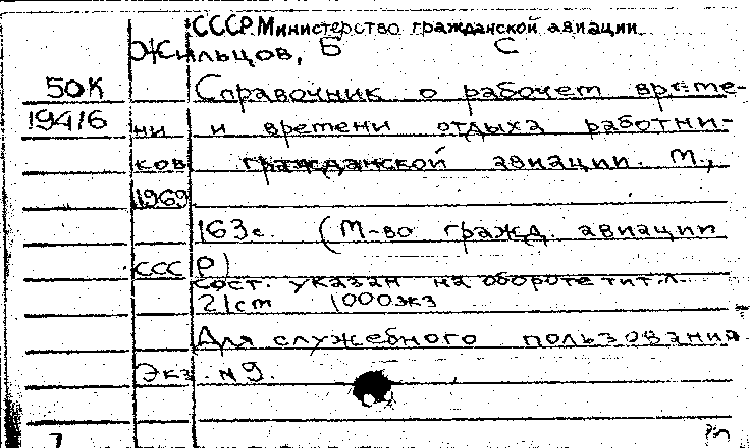 СССР. Министерство гражданской авиации
Жильцов, Б С
50К Справочник о рабочем време-
19416 ни и времени отдыха работни-
ков гражданской авиации. М.,
1969
163с. (М-во гражд. авиации
СССР)
сост. указан на обороте тит.л.
21см 1000экз
Для служебного пользования
Экз. №9.